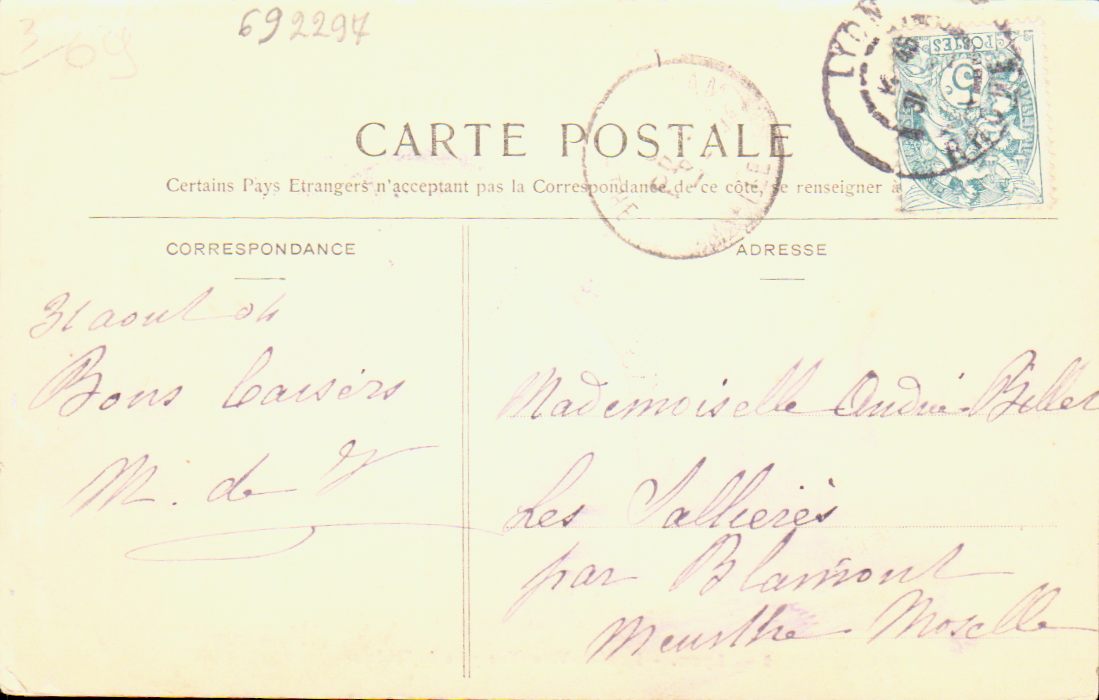 692297
3
69
LYON
RHONE
POSTES
5
CARTE POSTALE
Certains Pays Etrangers n'acceptant pas la Correspondance de ce côté, se renseigner à
CORRESPONDANCE
ADRESSE
31 aout 04
Bons baisers
M. de
Mademoiselle Andrée Billet
Les Sallières
par Blamont
Meurthe Moselle